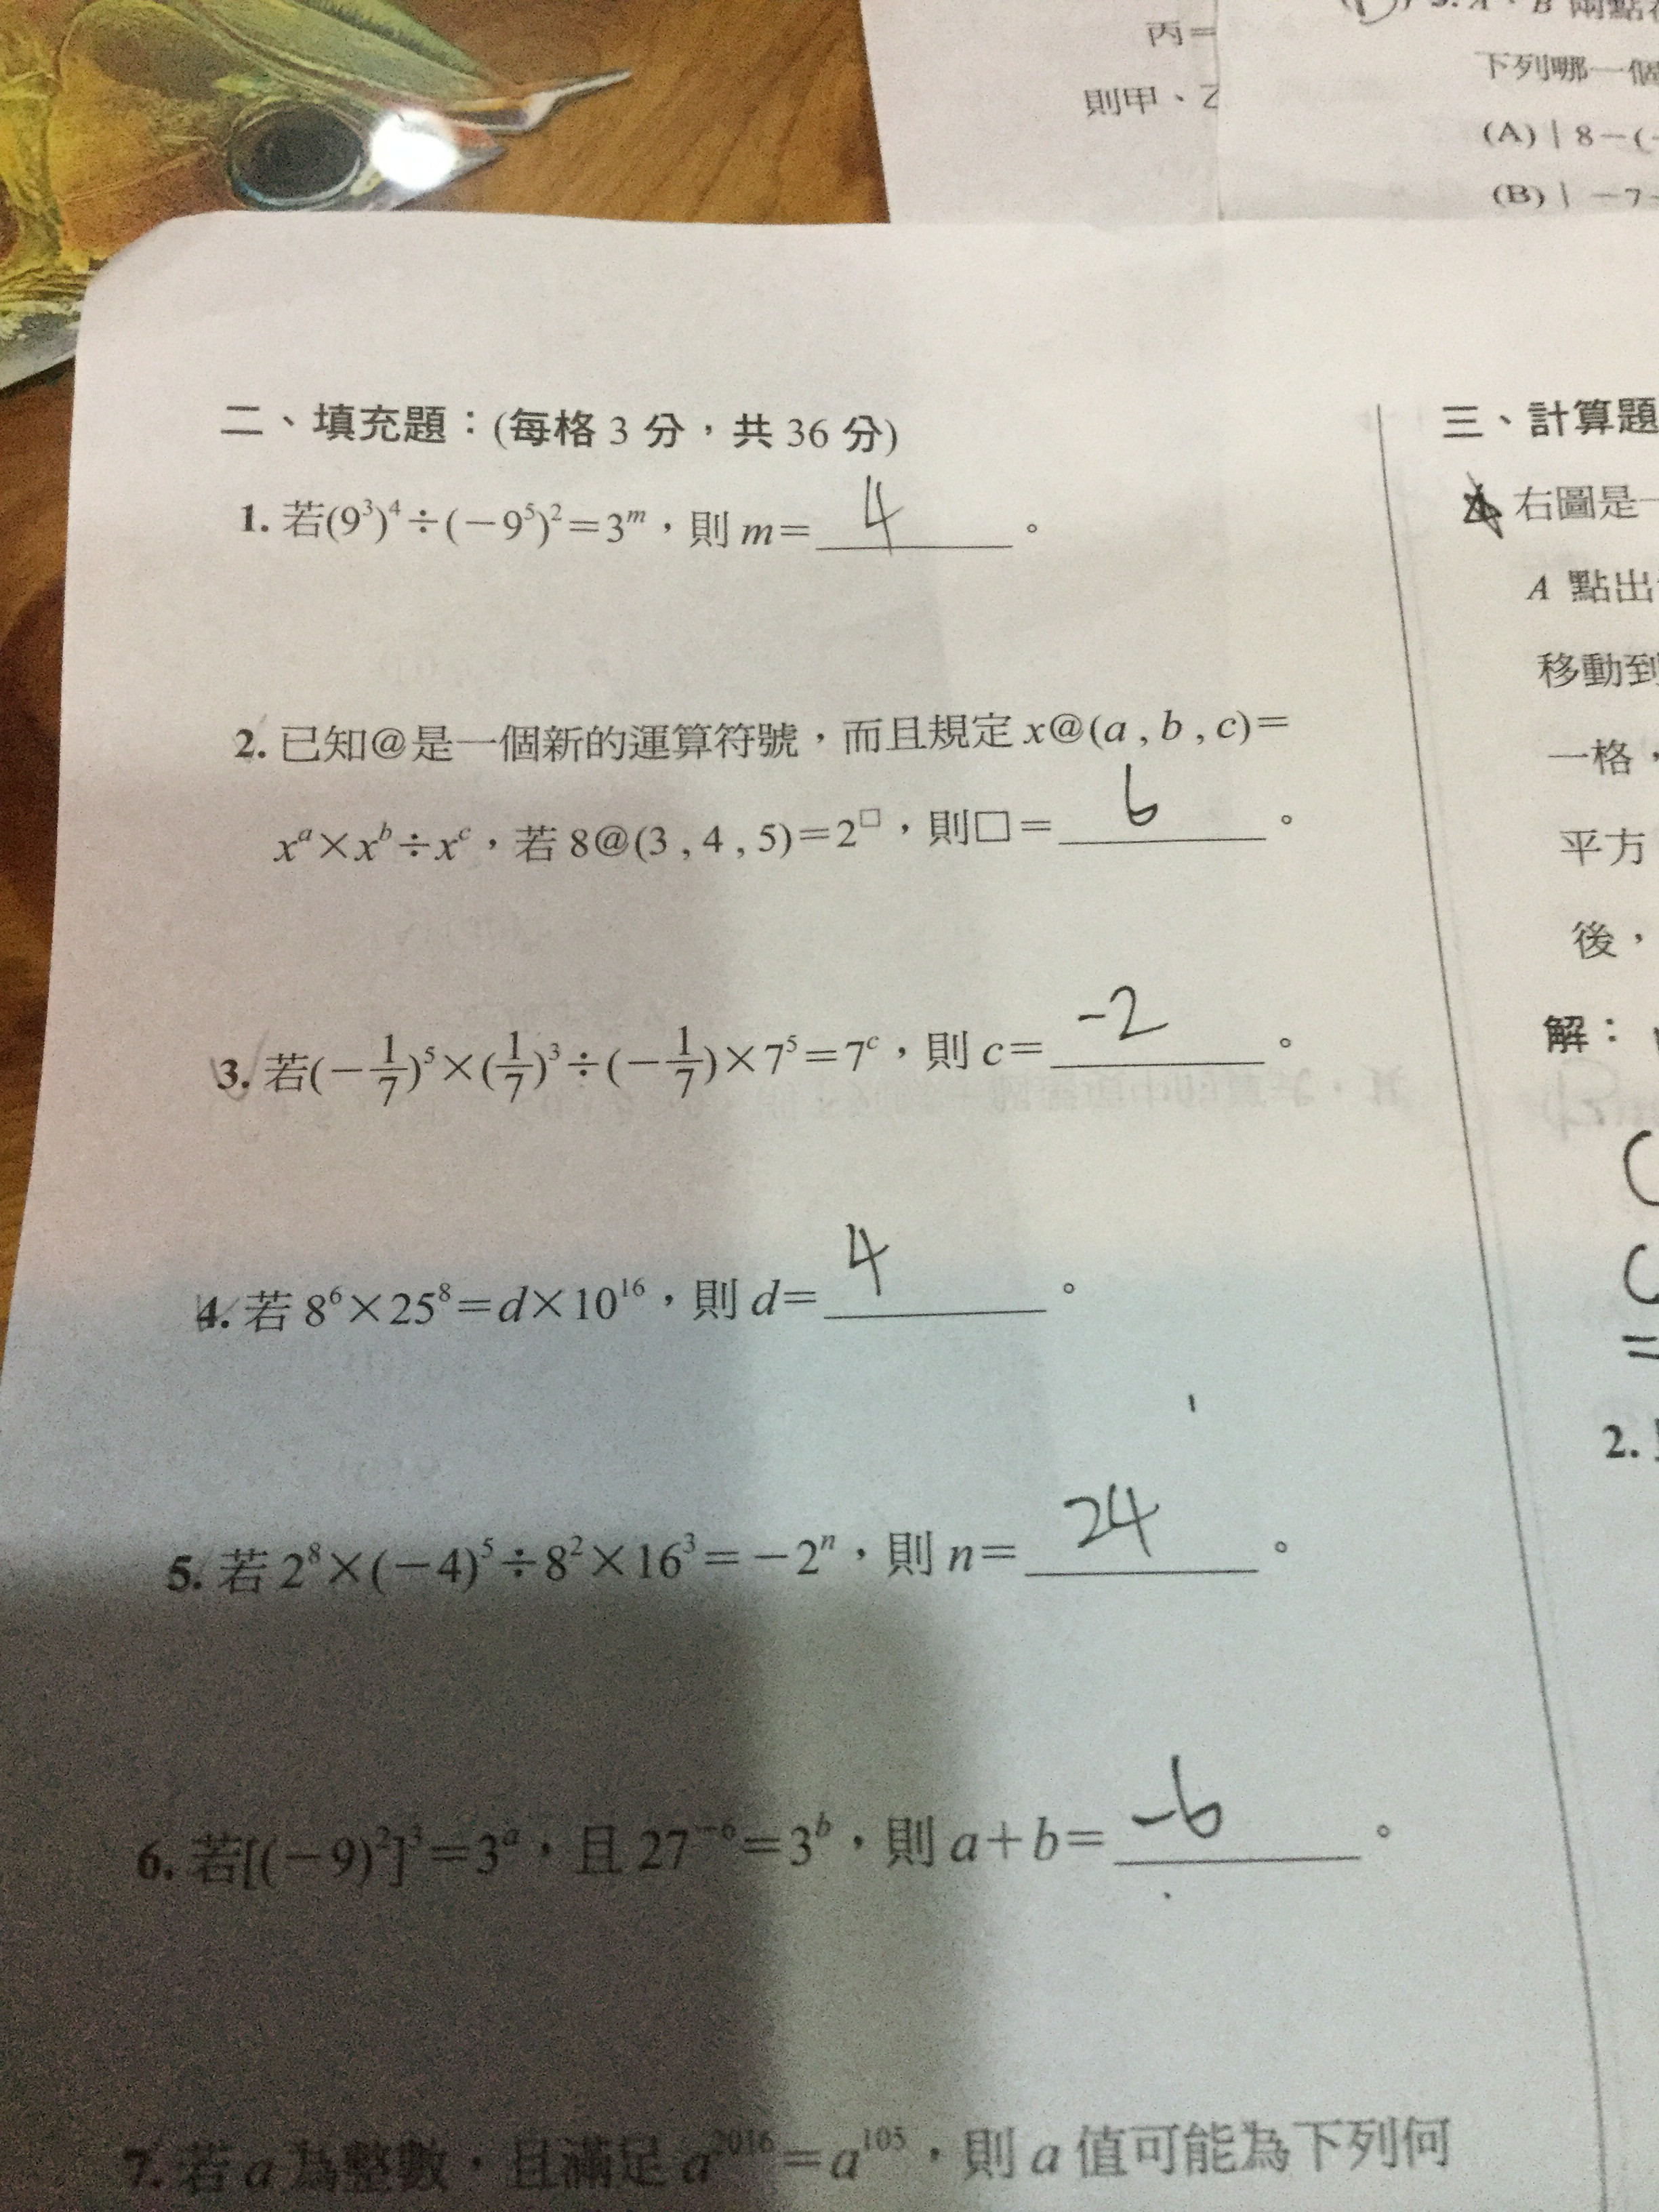 丙=
則甲、乙
下列哪一個
(A)|8-(-
(B)|-7-
二、填充題：(每格3分，共36分)
1. 若(9³)⁴÷(-9⁵)²=3ᵐ，則m=4。
2. 已知@是一個新的運算符號，而且規定x@(a , b , c)=
xᵃ×xᵇ÷xᶜ，若8@(3 , 4 , 5)=2^□，則□=6。
3. 若(-1/7)⁵×(1/7)³÷(-1/7)×7⁵=7ᶜ，則c=-2。
4. 若8⁶×25⁸=d×10¹⁶，則d=4。
5. 若2⁸×(-4)⁵÷8²×16³=-2ⁿ，則n=24。
6. 若[(-9)²]³=3ᵃ，且27⁻⁶=3ᵇ，則a+b=-6。
7. 若a為整數，且滿足a²⁰¹⁶=a¹⁰⁵，則a值可能為下列何
三、計算題
右圖是一
A 點出
移動到
一格，
平方
後，
解：
=
2.